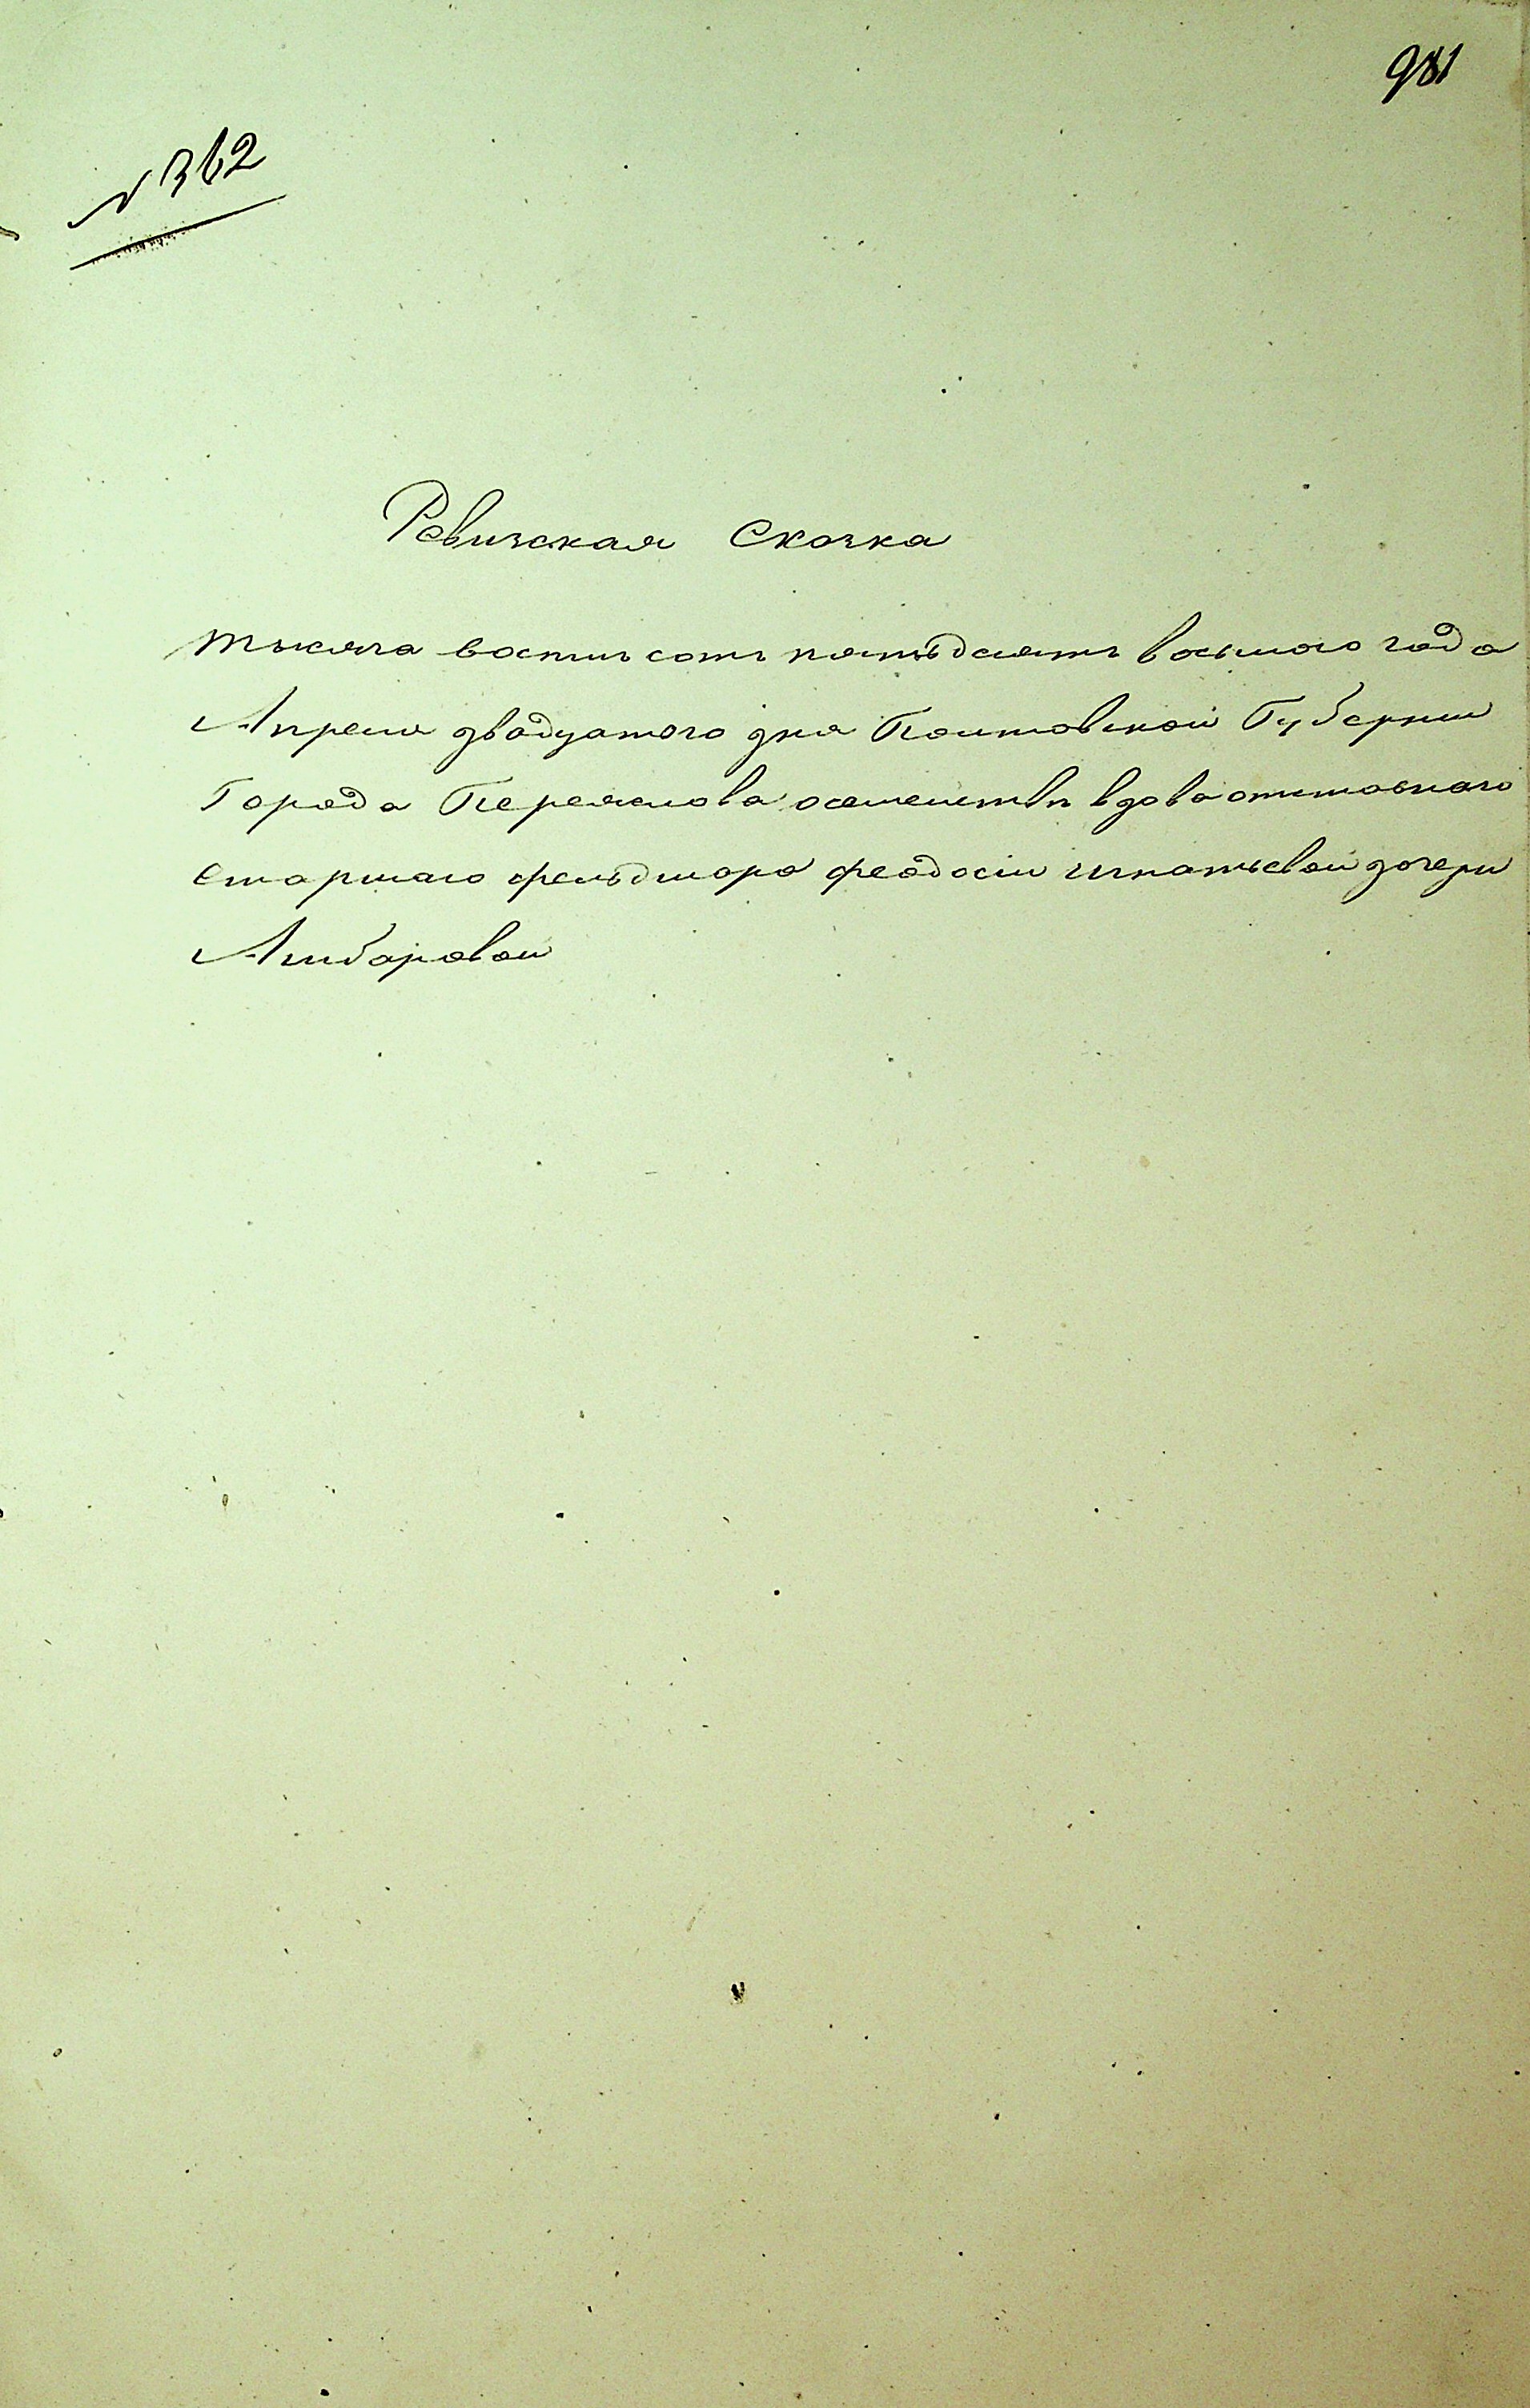 981
№ 362
Ревизская Сказка
тысяча восемь сотъ пятьдесятъ восьмого года
Апреля двадцатого дня Полтавской Губернии
Города Переяслова осемействѣ вдова отставнаго
Старшаго фельдшера феодосіи игнатьевой дочери